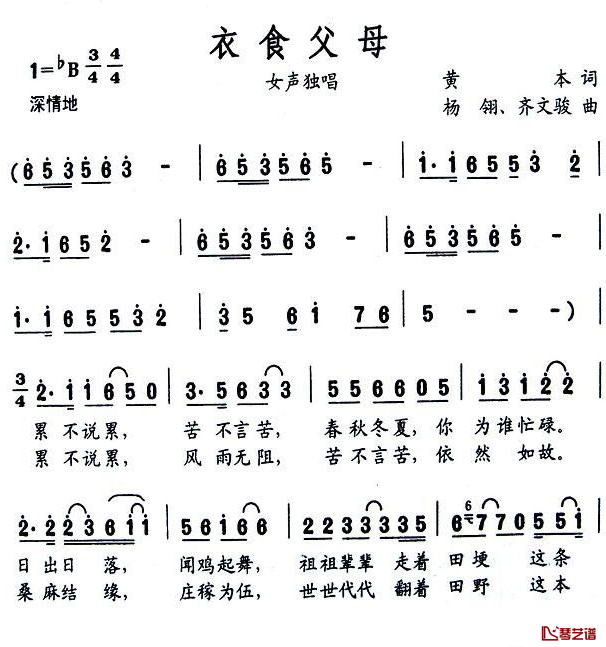 衣食父母
1=♭B 3/4 4/4
女声独唱
黄 本 词
深情地
杨 翎、齐文骏 曲
(6 5 3 5 6 3 - | 6 5 3 5 6 5 - | 1· 1 6 5 5 3 2 |
2· 1 6 5 2 - | 6 5 3 5 6 3 - | 6 5 3 5 6 5 - |
1· 1 6 5 5 3 2 | 3 5 6 1 7 6 | 5 - - ) |
3/4 2· 1 1 6 5 0 | 3· 5 6 3 3 | 5 5 6 6 0 5 | 1 3 1 2 2 |
累 不说累, 苦 不言苦, 春秋冬夏,你 为谁忙碌。
累 不说累, 风 雨无阻, 苦 不言苦,依 然 如故。
2· 2 2 3 6 1 1 | 5 6 1 6 6 | 2 2 3 3 3 3 5 | 6 6 7 7 0 5 5 1 |
日 出日 落, 闻鸡起舞, 祖祖辈辈 走着 田埂 这条
桑 麻结 缘, 庄稼为伍, 世世代代 翻着 田野 这本
琴艺谱